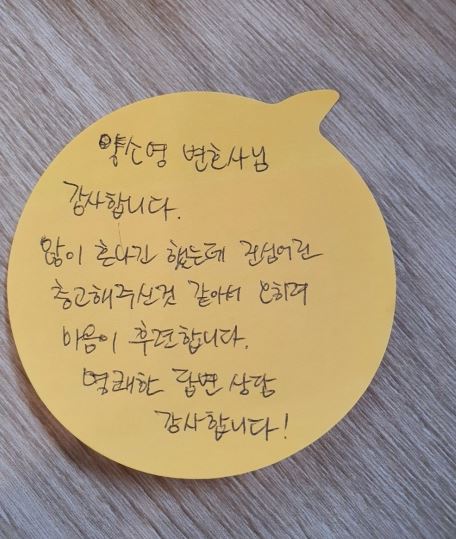 양소영 변호사님
감사합니다.
많이 혼나긴 했는데 관심어린
충고해주신것 같아서 오히려
마음이 후련합니다.
명쾌한 답변 상담
감사합니다!